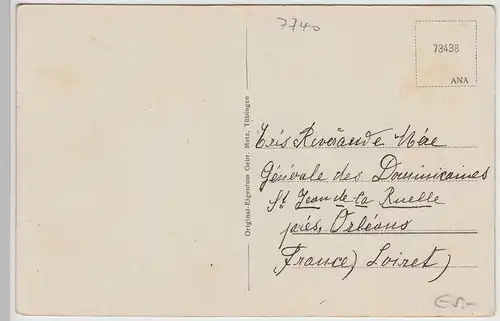 7740
73438
ANA
Original-Eigentum Gebr. Metz, Tübingen
Très Révérende Mère
Générale des Dominicaines
St Jean de la Ruelle
près, Orléans
France) Loiret)